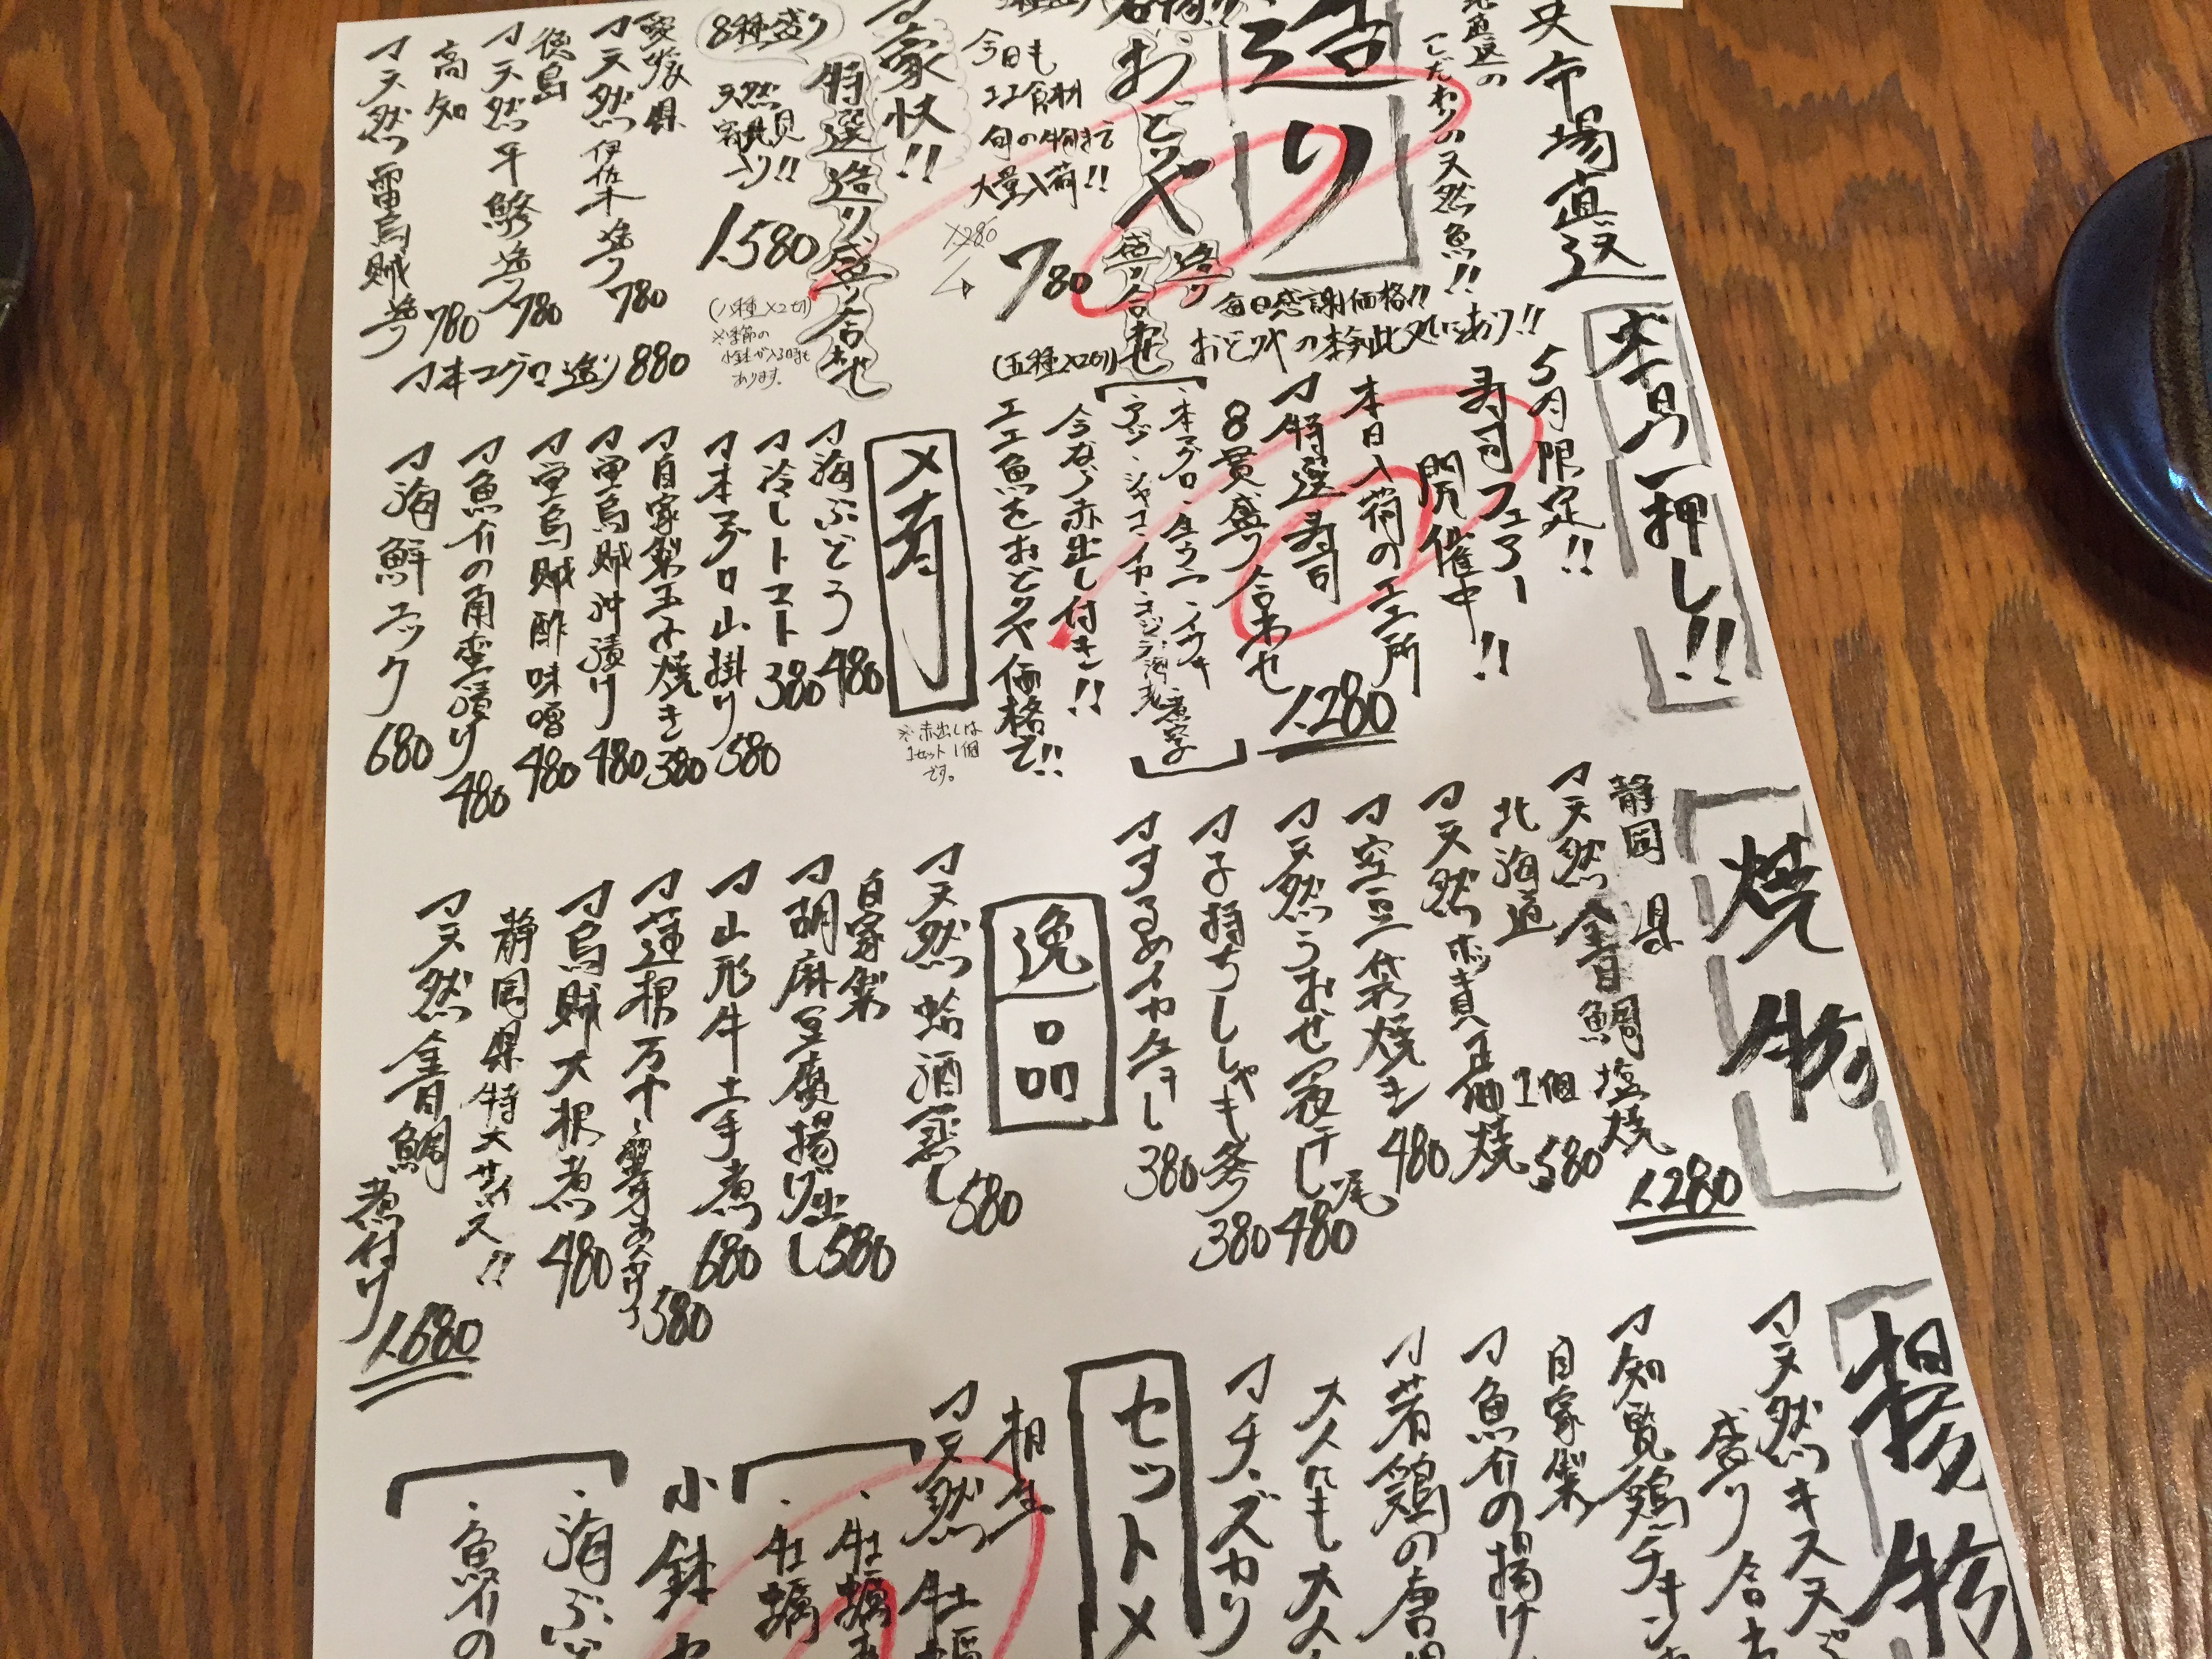 央市場直送
こだわりの天然魚!!
造り
毎日感謝価格!!
おどりやの本領此処にあり!!
名物!!
おどりや
造り
盛り合せ
780
(五種×2切)
今日も
旬の物まで
大量入荷!!
豪快!!
特選造り盛り合せ
8種盛り
天然
入り!!
1.580
(八種×2切)
※季節の
あります。
愛媛県
天然伊佐木造り 780
徳島
天然平鯵造り 780
高知
天然雷烏賊造り 780
本マグロ造り 880
本日の一押し!!
5月限定!!
寿司フェアー
開催中!!
本日入荷のエエ所
特選寿司
8貫盛り合わせ
1.280
今なら赤出し付き!!
エエ魚をおどりや価格で!!
※赤出しは
1セット1個
です。
〆肴
海ぶどう 480
冷しトマト 380
本マグロ山掛け 580
自家製玉子焼き 380
蛍烏賊沖漬け 480
蛍烏賊酢味噌 480
魚介の南蛮漬け 480
海鮮ユッケ 680
焼物
静岡県
天然金目鯛塩焼 1.280
北海道
天然ホッキ貝正油焼 1個 580
空豆一袋焼き 480
天然うおぜ一夜干し 一尾 480
子持ちししゃも 380
するめイカ一夜干し 380
逸品
天然蛤酒蒸し 580
自家製
胡麻豆腐揚げ出し 580
山形牛土手煮 680
蓮根万十 蟹身あんかけ 580
烏賊大根煮 480
静岡県特大サイズ!!
天然金目鯛煮付け 1.680
揚物
天然キス天ぷ
盛り合わ
知覧鶏チキン
自家製
魚介の揚げ
若鶏の唐揚
大人にも大人
チーズカリ
セットメ
相生
天然牡蠣
・牡蠣
・牡蠣
小鉢
・海ぶ
・魚介の